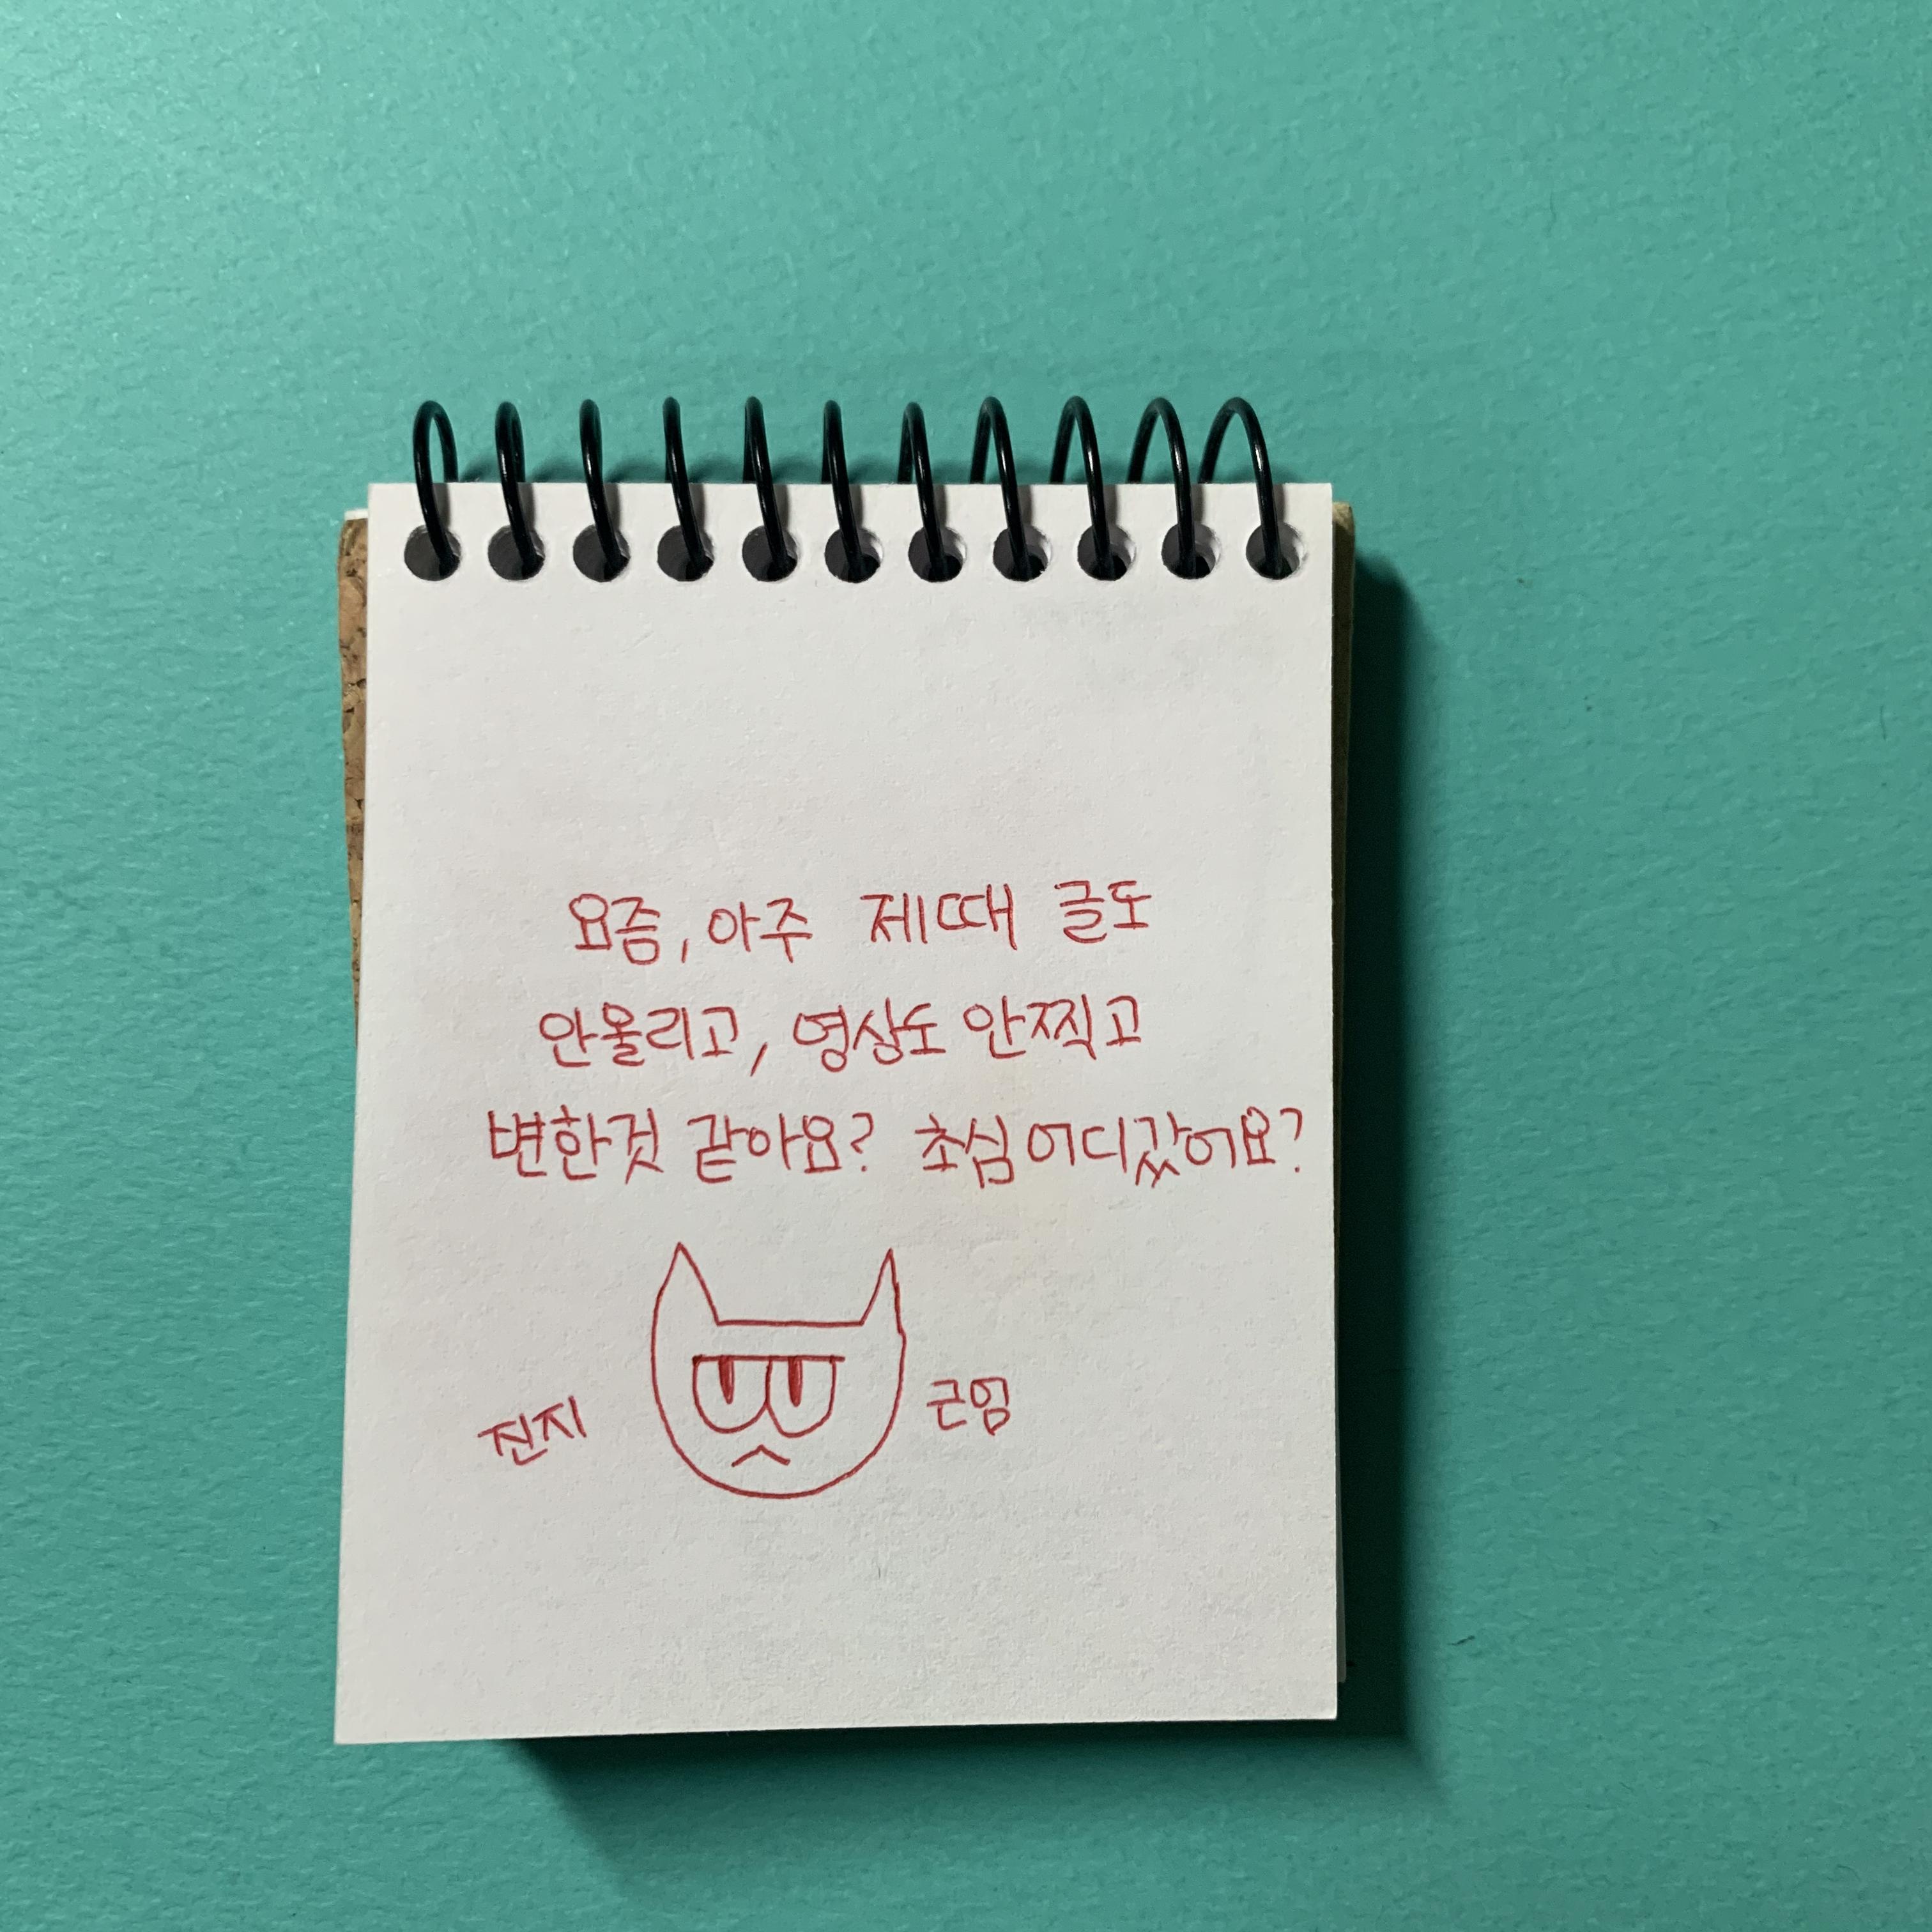 요즘, 아주 제때 글도
안올리고, 영상도 안찍고
변한것 같아요? 초심 어디갔어요?
진지 근엄